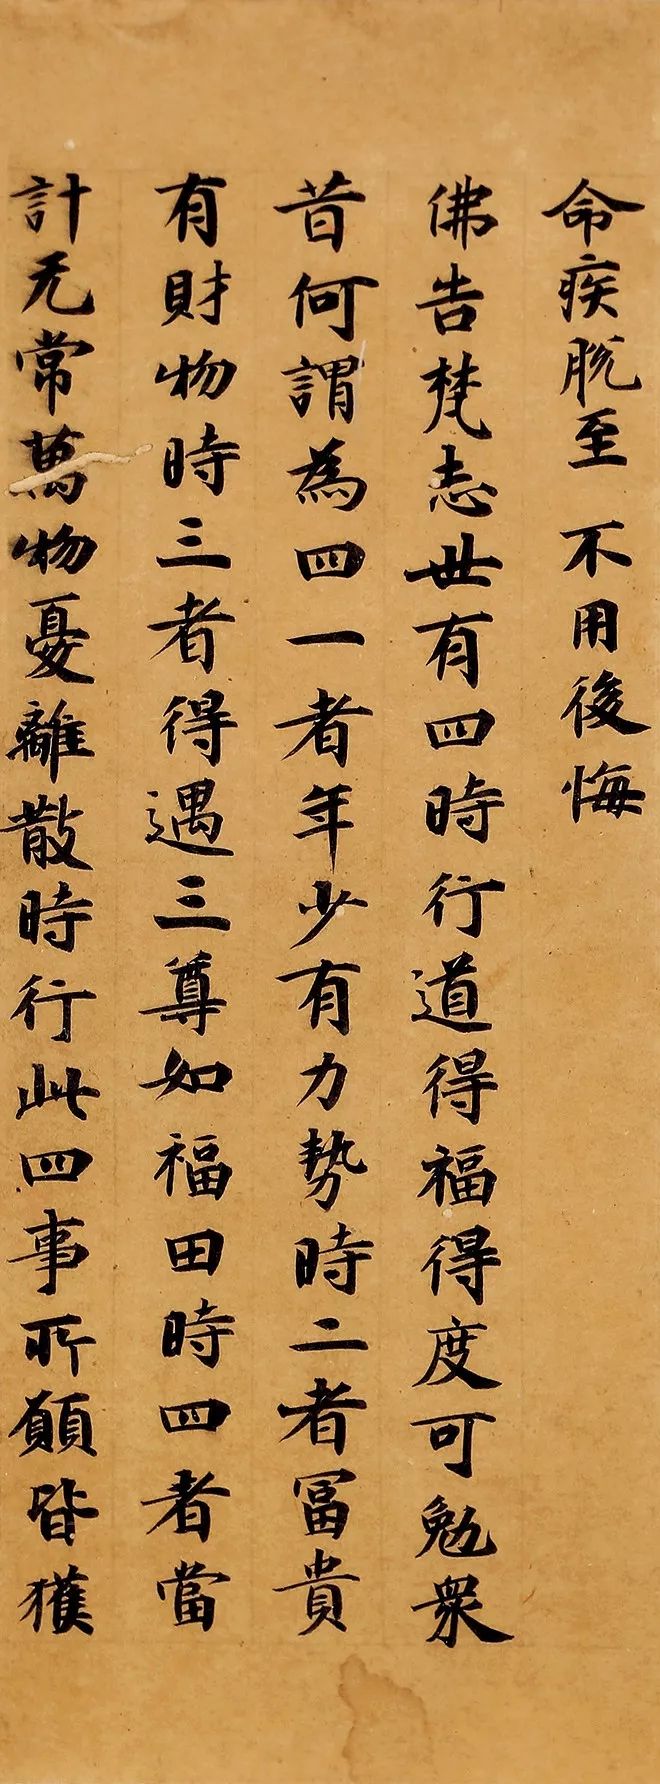 命疾脫至 不用後悔
佛告梵志世有四時行道得福得度可勉衆
昔何謂為四一者年少有力勢時二者冨貴
有財物時三者得遇三尊如福田時四者當
計无常萬物憂離散時行此四事所願皆獲